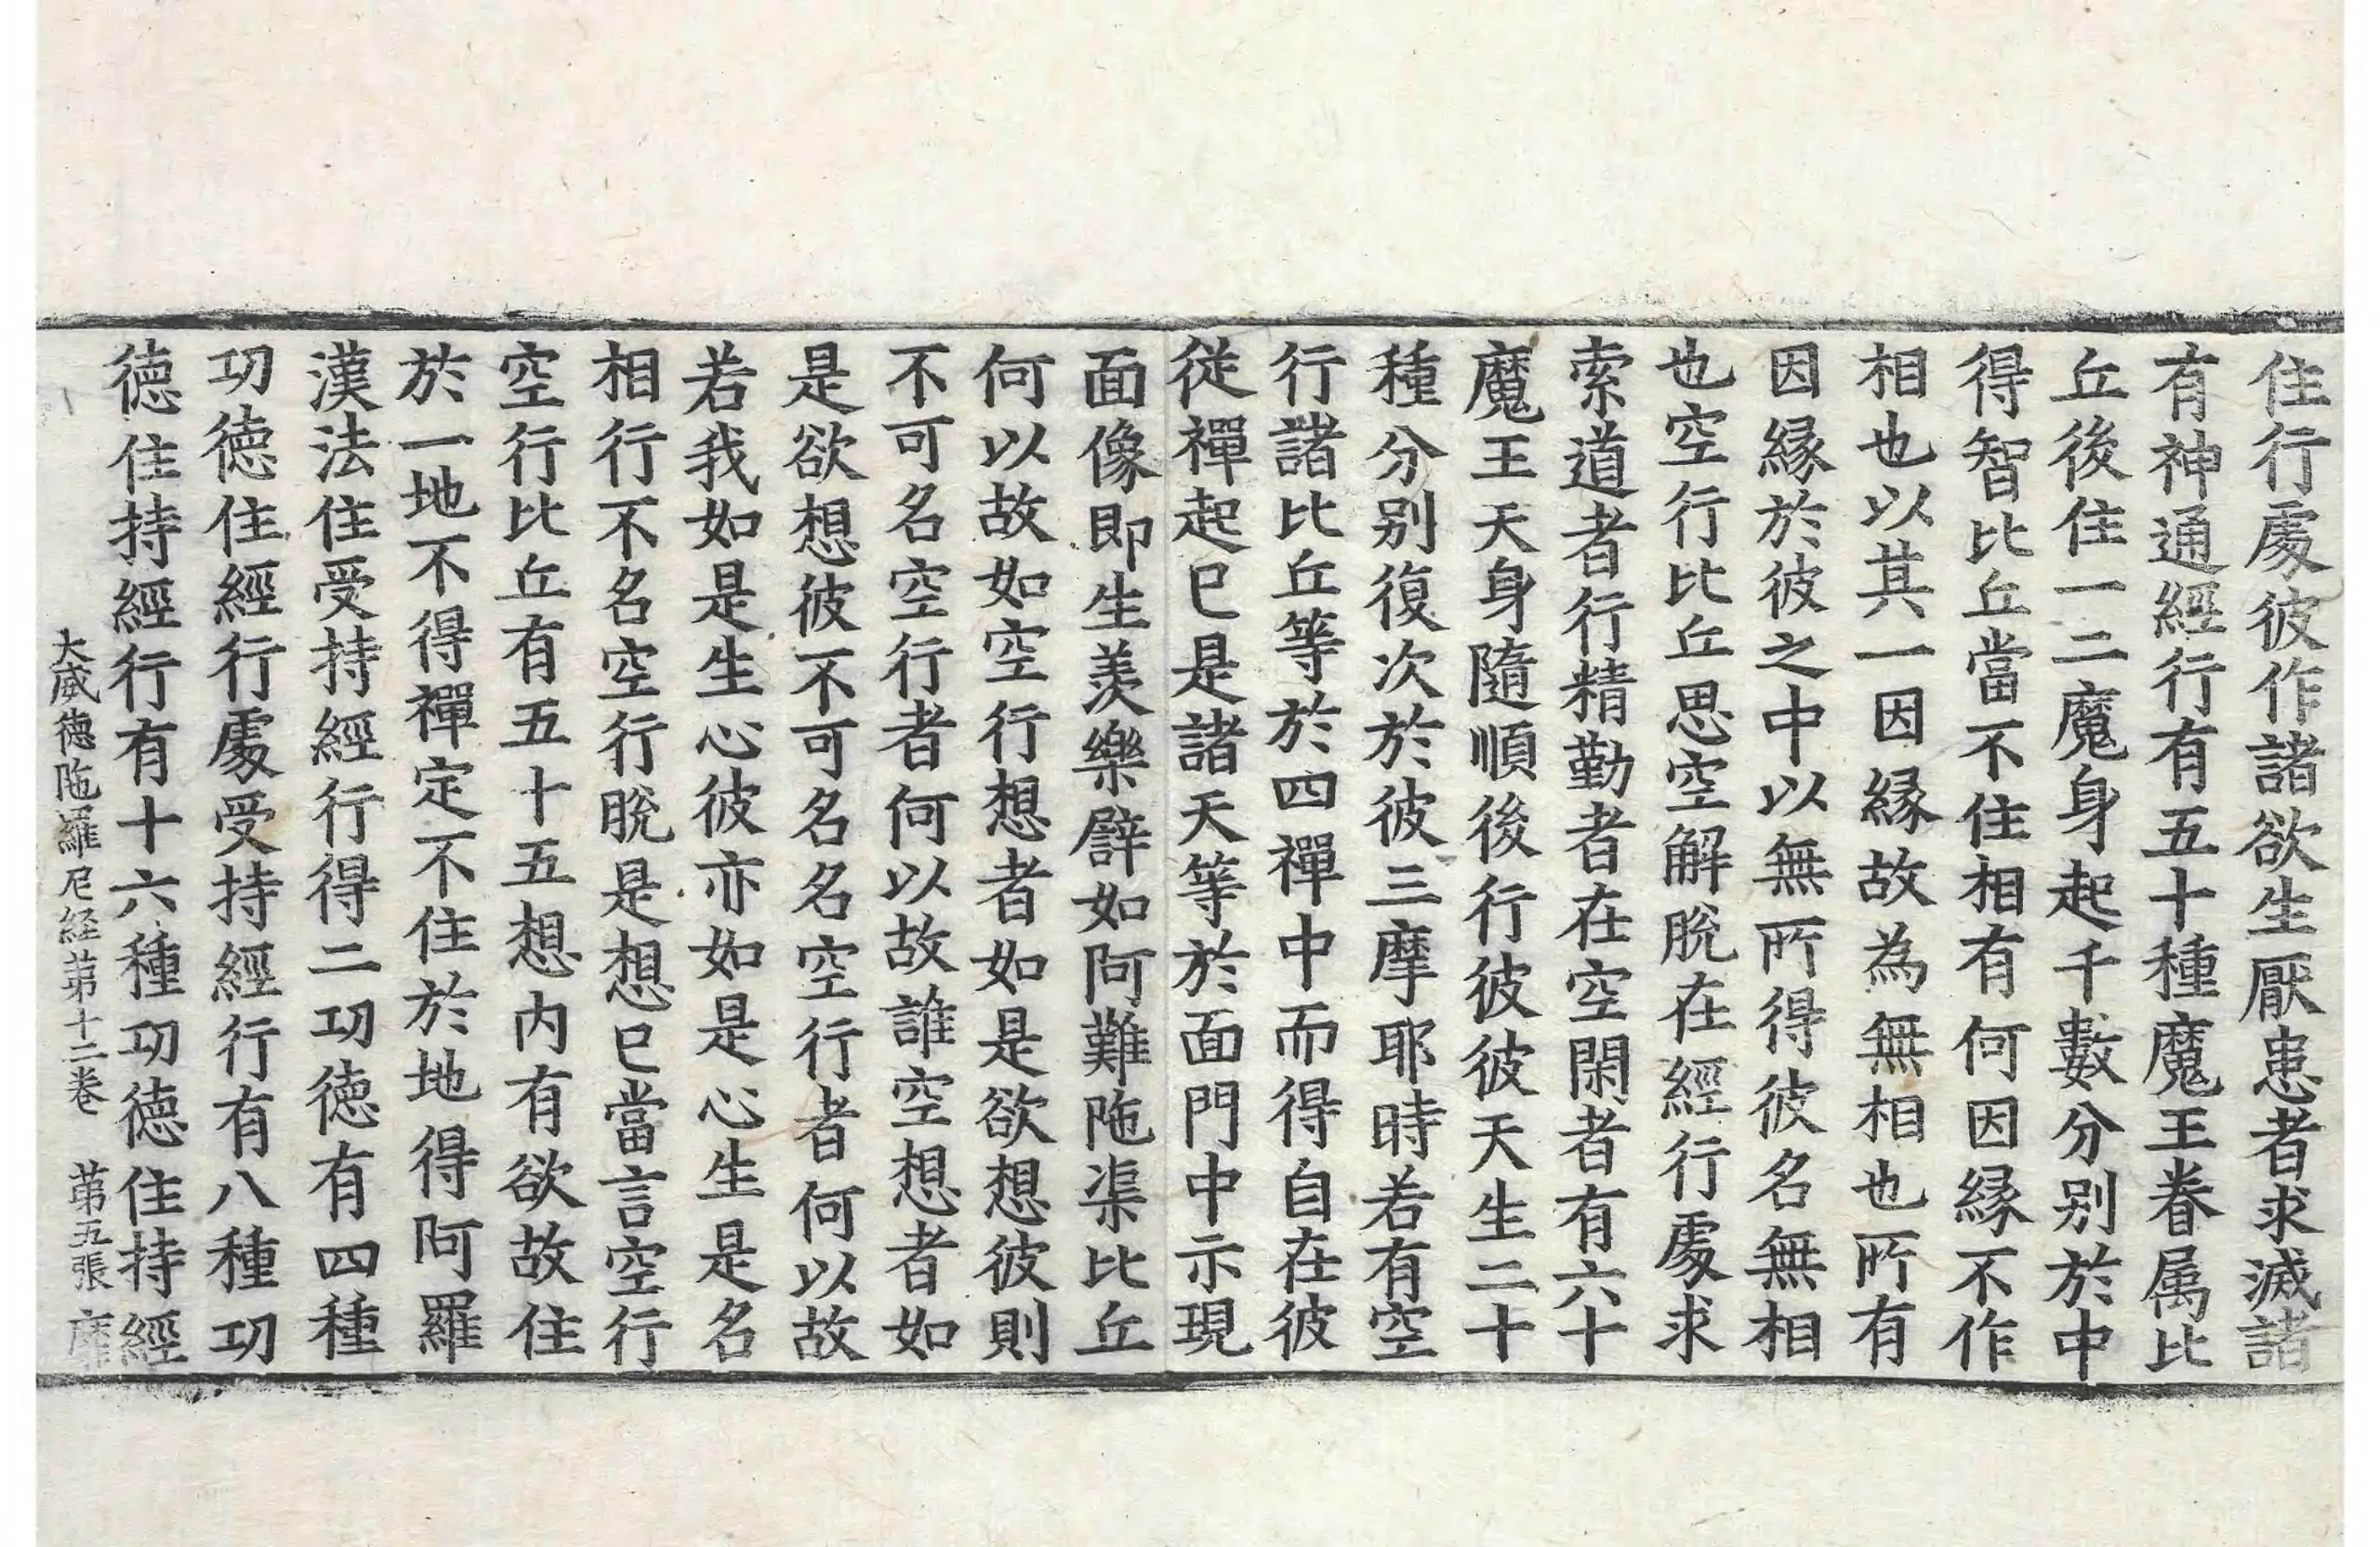 住行處彼作諸欲生厭患者求滅諸
有神通經行有五十種魔王眷属比
丘後住一二魔身起千數分別於中
得智比丘當不住相有何因緣不作
相也以其一因緣故為無相也所有
因緣於彼之中以無所得彼名無相
也空行比丘思空解脫在經行處求
索道者行精勤者在空閑者有六十
魔王天身隨順後行彼彼天生二十
種分別復次於彼三摩耶時若有空
行諸比丘等於四禪中而得自在彼
從禪起已是諸天等於面門中示現
面像即生羨樂譬如阿難陁渠比丘
何以故如空行想者如是欲想彼則
不可名空行者何以故誰空想者如
是欲想彼不可名名空行者何以故
若我如是生心彼亦如是心生是名
相行不名空行脫是想已當言空行
空行比丘有五十五想內有欲故住
於一地不得禪定不住於地得阿羅
漢法住受持經行得二功德有四種
功德住經行處受持經行有八種功
德住持經行有十六種功德住持經
大威德陁羅尼経第十二卷 第五張 靡